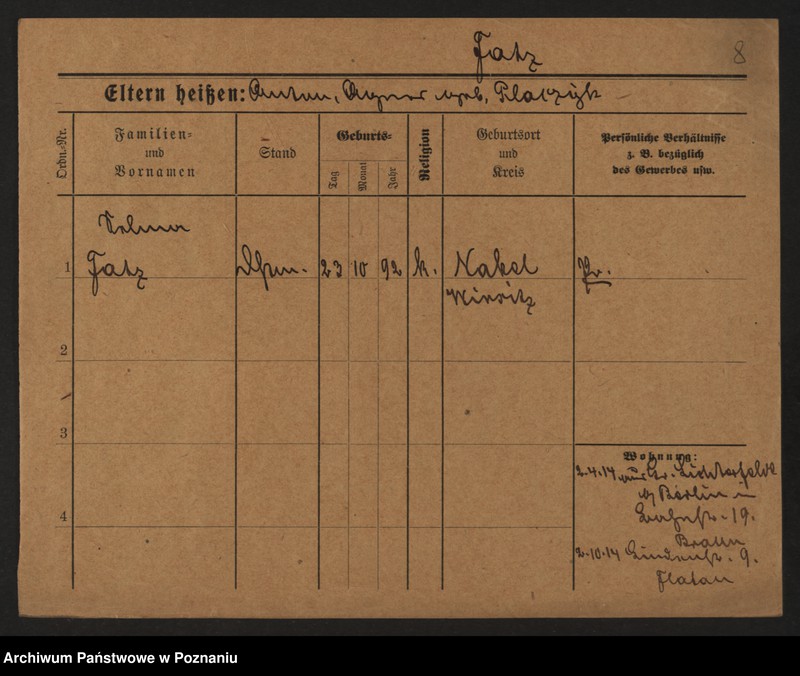 Fatz
8
Eltern heißen: Anton, Agnes geb. Placzyk
Ordn.-Nr.
Familien-
und
Vornamen
Stand
Geburts-
Tag
Monat
Jahr
Religion
Geburtsort
und
Kreis
Persönliche Verhältnisse
z. B. bezüglich
des Gewerbes usw.
Selma
1 Fatz 23 10 92 k. Nakel Pr.
Wirsitz
2
3
Wohnung:
2.4.14 aus Gr. Lichterfelde
b/ Berlin in
4
Bahnstr. 19.
Braun
2.10.14 Lindenstr. 9.
Flatau
Archiwum Państwowe w Poznaniu